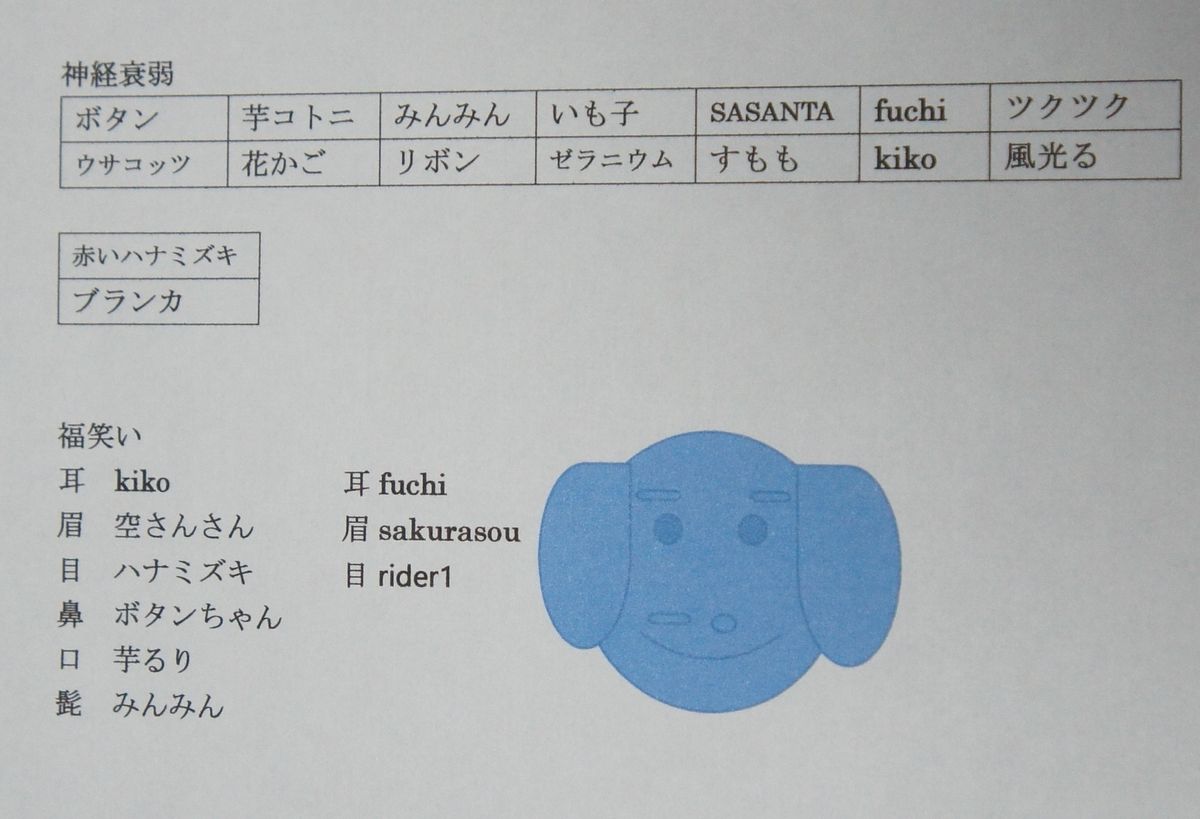 神経衰弱
ボタン 芋コトニ みんみん いも子 SASANTA fuchi ツクツク
ウサコッツ 花かご リボン ゼラニウム すもも kiko 風光る
赤いハナミズキ
ブランカ
福笑い
耳 kiko 耳 fuchi
眉 空さんさん 眉 sakurasou
目 ハナミズキ 目 rider1
鼻 ボタンちゃん
口 芋るり
髭 みんみん